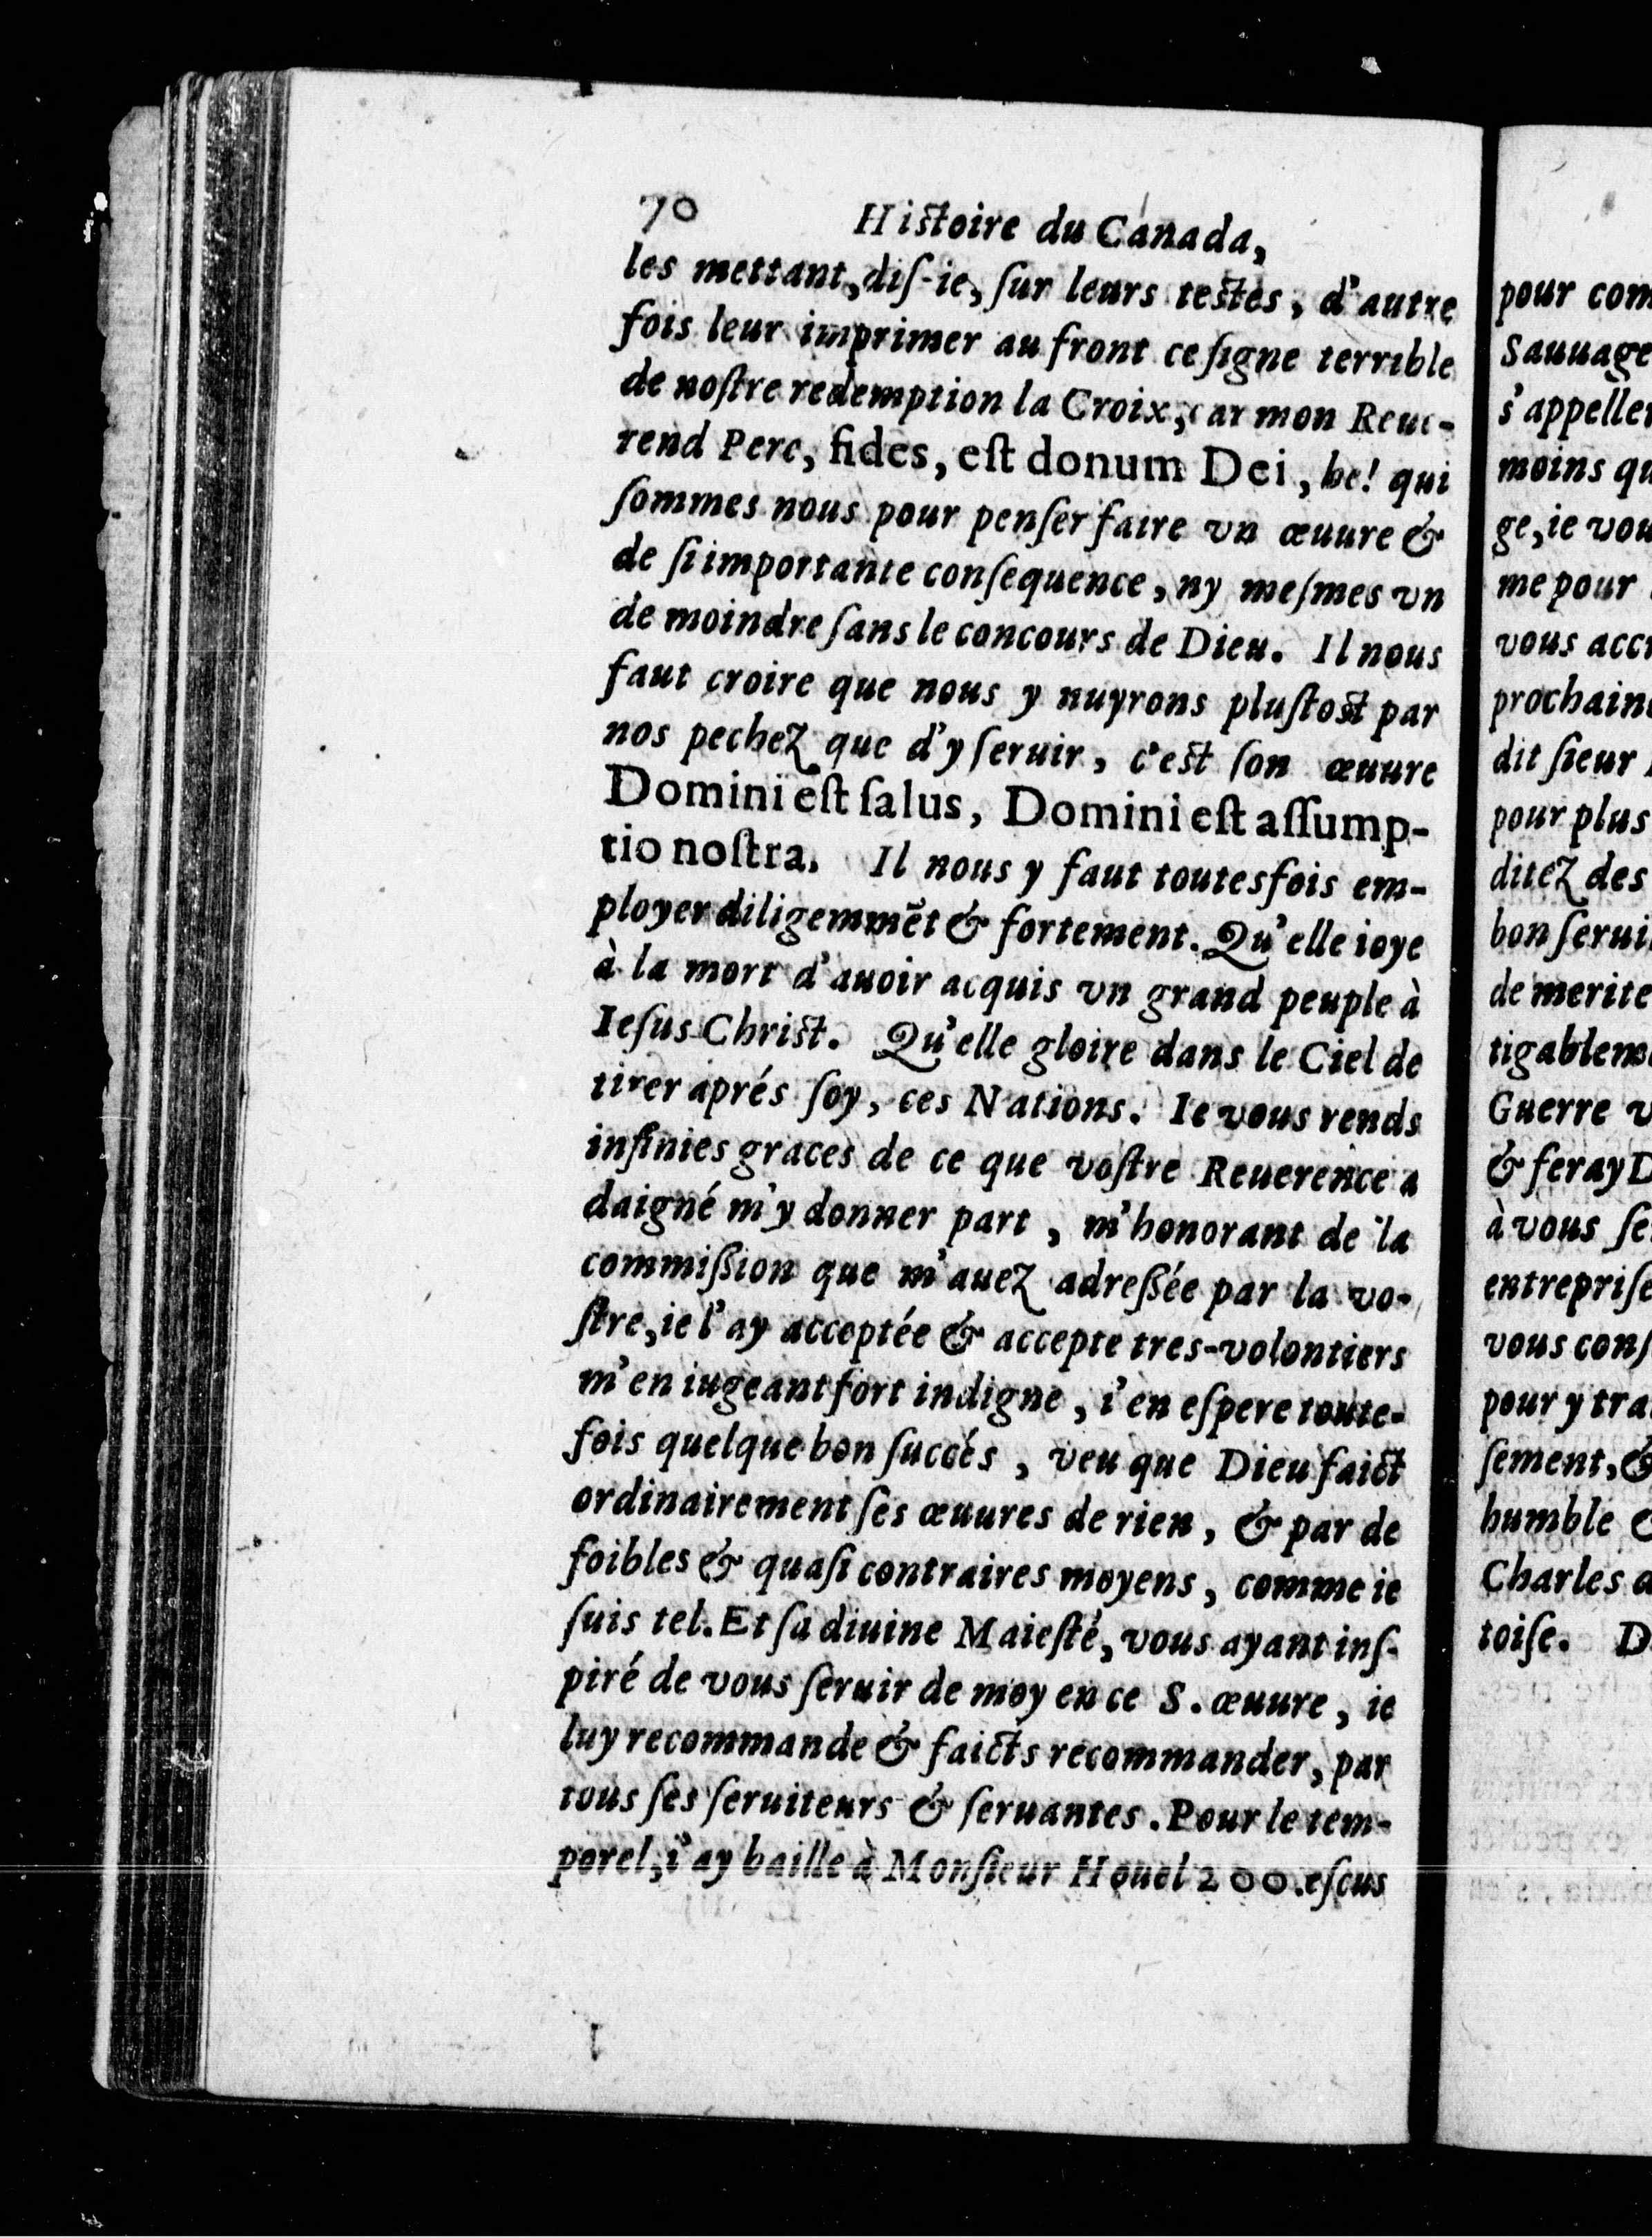 70 Histoire du Canada,
les mettant, diſ-ie, ſur leurs testes, d'autre
fois leur imprimer au front ce ſigne terrible
de noſtre redemption la Croix, car mon Reue-
rend Pere, fides, eſt donum Dei, he! qui
ſommes nous pour penſer faire vn œuure &
de ſi importante conſequence, ny meſmes vn
de moindre ſans le concours de Dieu. Il nous
faut croire que nous y nuyrons pluſtost par
nos pechez que d'y ſeruir, c'est ſon œuure
Domini eſt ſalus, Domini eſt aſſump-
tio noſtra. Il nous y faut toutesfois em-
ployer diligemmēt & fortement. Qu'elle ioye
à la mort d'auoir acquis vn grand peuple à
Ieſus Christ. Qu'elle gloire dans le Ciel de
tirer aprés ſoy, ces Nations. Ie vous rends
infinies graces de ce que voſtre Reuerence a
daigné m'y donner part, m'honorant de la
commiſsion que m'auez adreſsée par la vo-
ſtre, ie l'ay acceptée & accepte tres-volontiers
m'en iugeant fort indigne, i'en eſpere toute-
fois quelque bon ſuccés, veu que Dieu faict
ordinairement ſes œuures de rien, & par de
foibles & quaſi contraires moyens, comme ie
ſuis tel. Et ſa diuine Maieſté, vous ayant inſ-
piré de vous ſeruir de moy en ce S. œuure, ie
luy recommande & faicts recommander, par
tous ſes ſeruiteurs & ſeruantes. Pour le tem-
porel, i'ay baille à Monſieur Houel 200. eſcus
pour com
Sauuage
s'appeller
moins qu
ge, ie vou
me pour
vous accr
prochain
dit ſieur
pour plus
ditez des
bon ſerui
de merite
tigablem
Guerre v
& feray D
à vous ſe
entrepriſe
vous conſ
pour y tra
ſement, &
humble &
Charles
toiſe. D